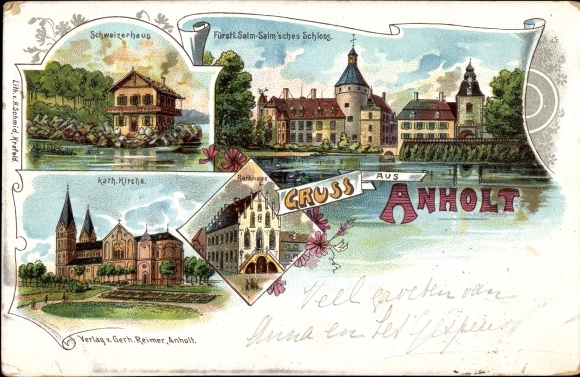 Schweizerhaus
Fürstl. Salm-Salm'sches Schloss.
Lith. v. H. Schmid, Krefeld.
kath. Kirche.
Rathhaus
GRUSS AUS ANHOLT
Veel groeten van
Anna en
Verlag v. Gerh. Reimer, Anholt.